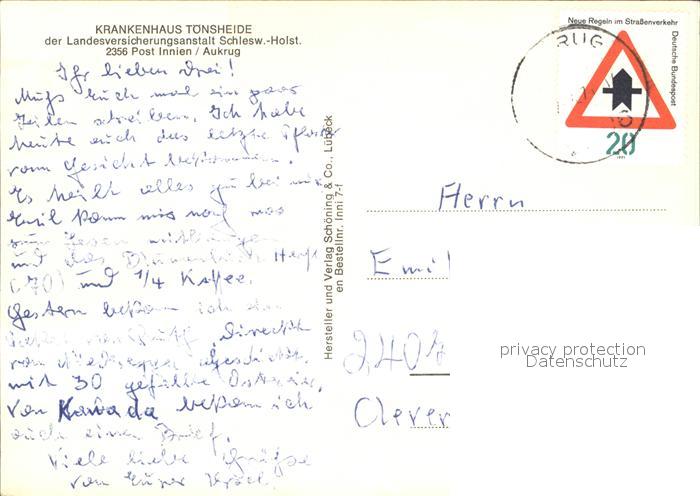 KRANKENHAUS TÖNSHEIDE
der Landesversicherungsanstalt Schlesw.-Holst.
2356 Post Innien / Aukrug
Ihr lieben Drei!
Muß Euch mal ein paar
Zeilen schreiben. Ich habe
heute auch das letzte Pflaster
vom Gesicht bekommen.
Es heilt alles gut bei mir.
Emil kann mir noch was
zum Lesen mitbringen
und das
(70) und 1/4 Kaffee.
Gestern bekam ich
von
mit 30 gefüllte Ostereier,
Von Kanada bekam ich
auch einen Brief.
Viele liebe Grüße
von Eurer
Hersteller und Verlag Schöning & Co., Lübeck
en Bestellnr. Inni 7-f
Neue Regeln im Straßenverkehr
Deutsche Bundespost
20
1971
RUG
Herrn
Emil
2401
Clever
privacy protection
Datenschutz